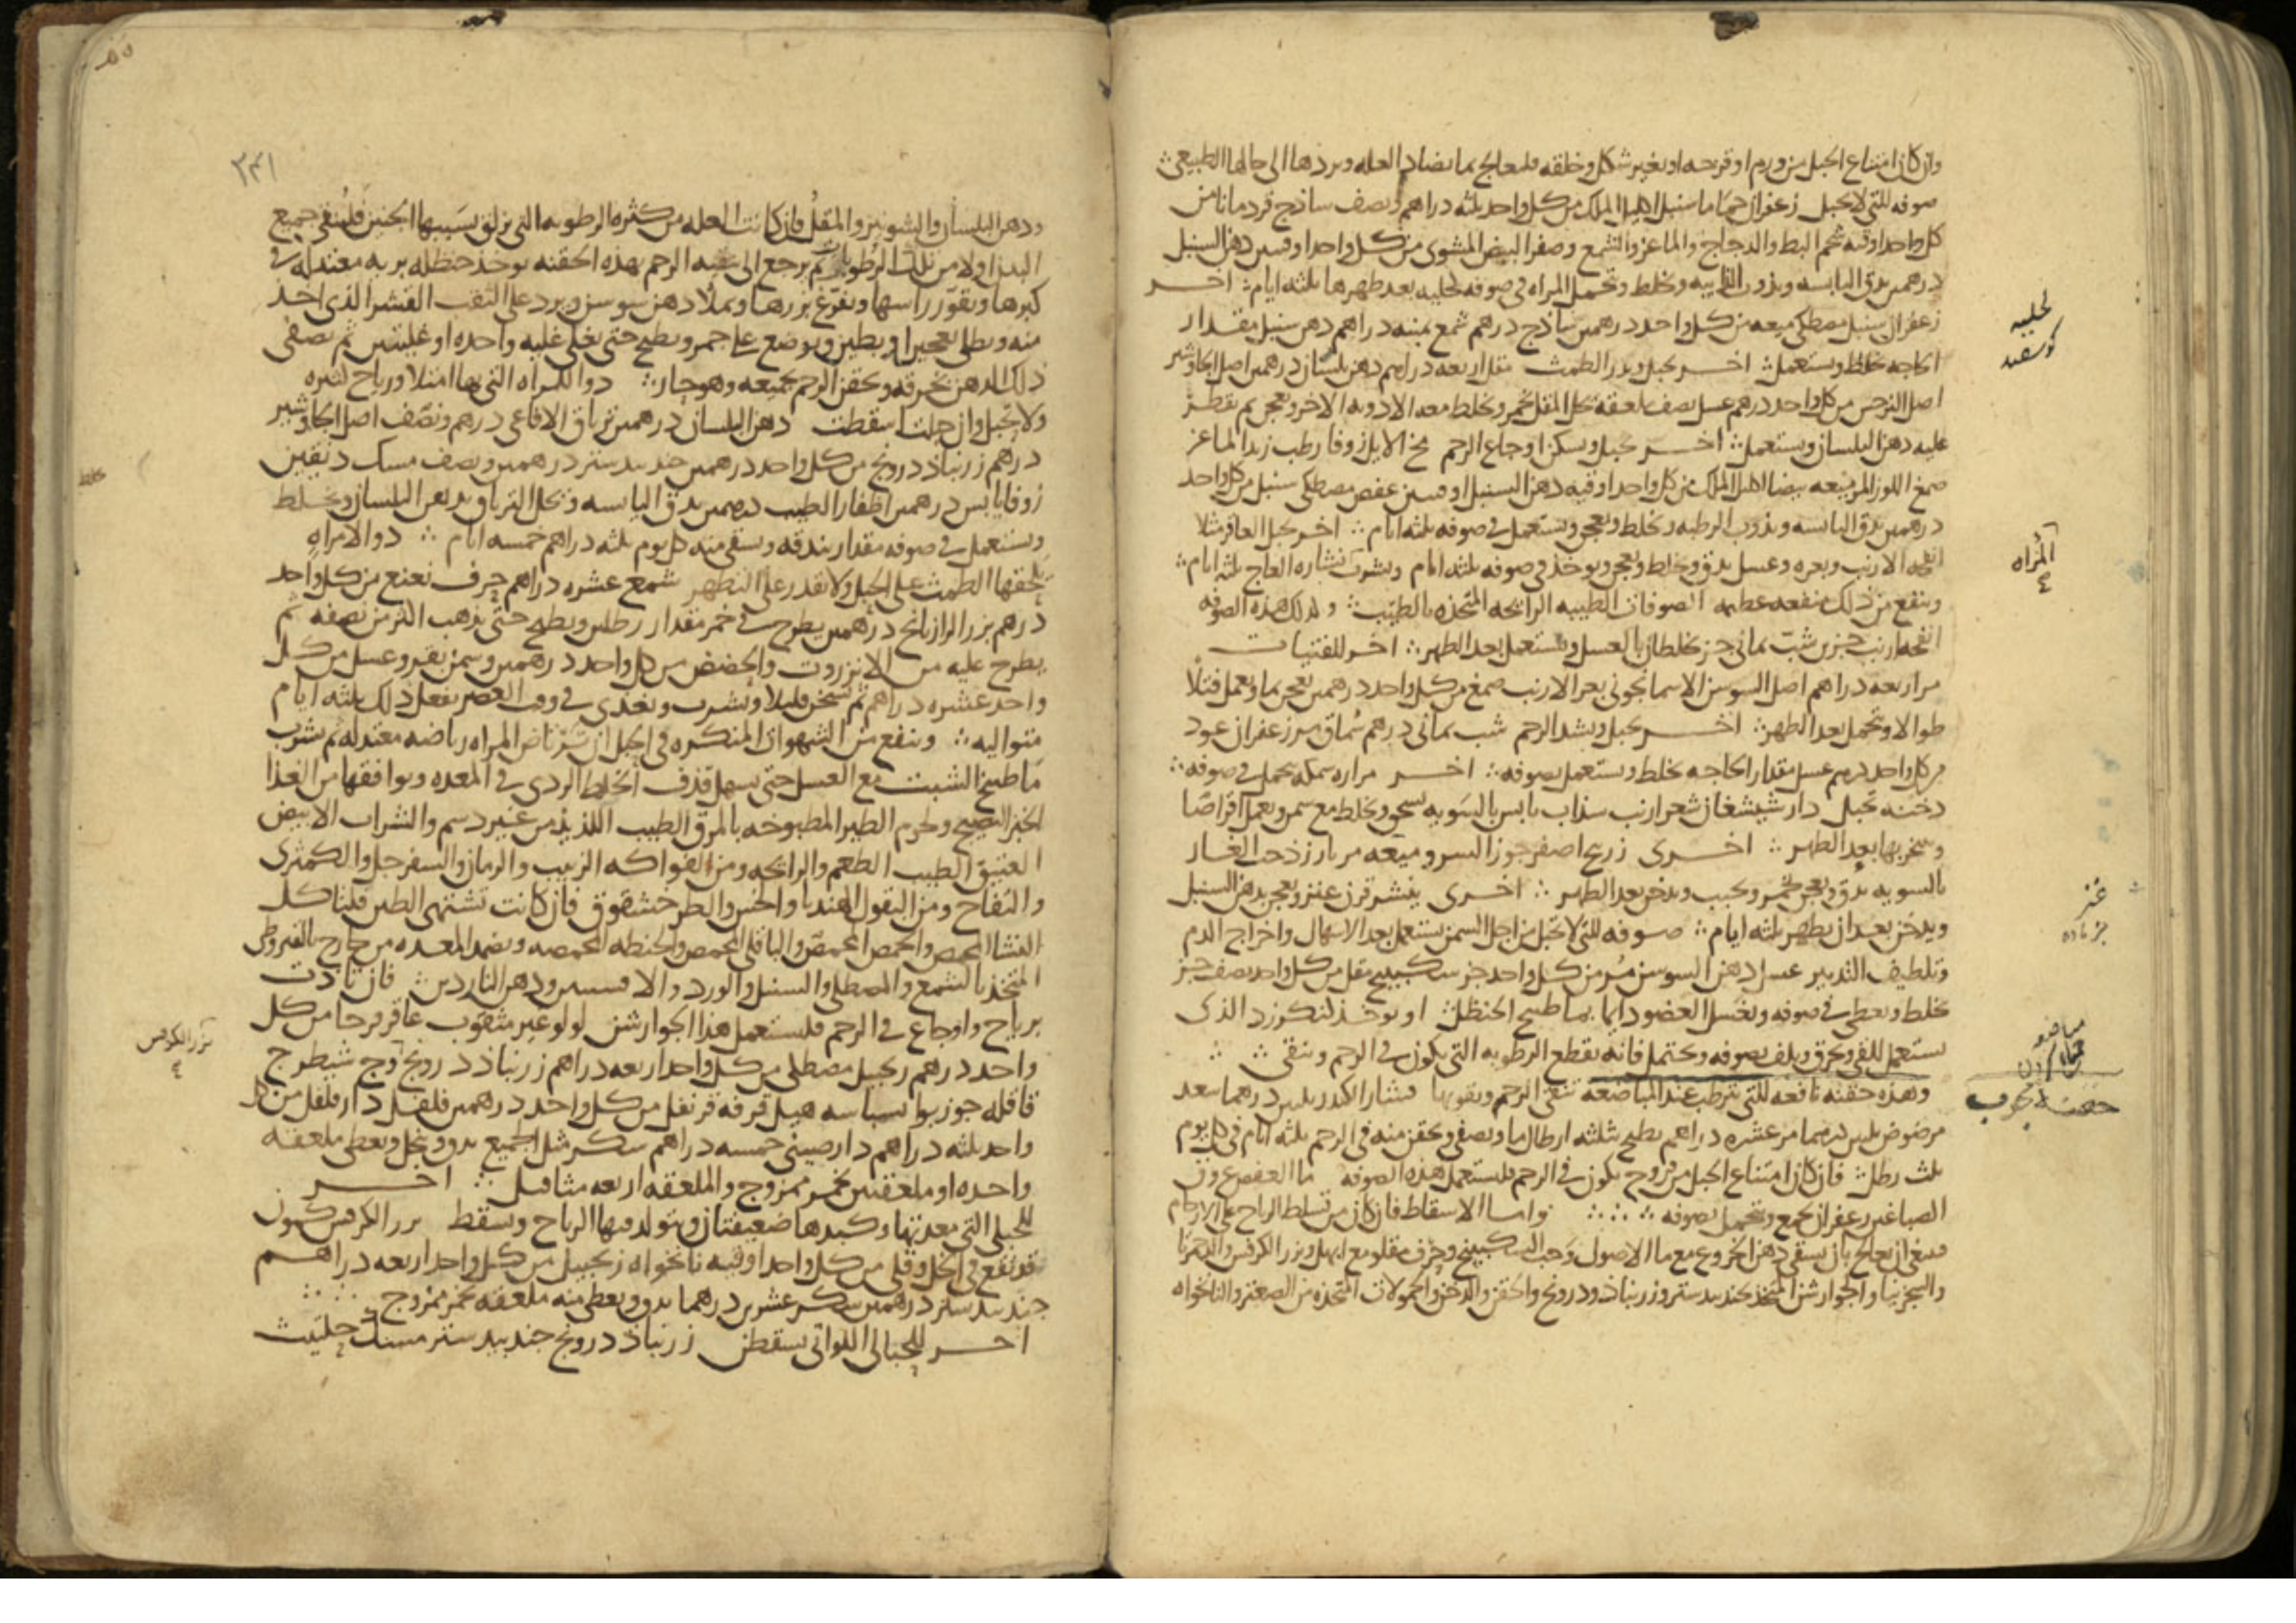 وان كان امتناع الحبل من ورم او قرحه او تغير شكل وخلقه فليعالج بما يضاد العله ويردها الى حالها الطبيعى
صوفه للتى لا تحبل زعفران حماما سنبل اكليل الملك من كل واحد ثلثه دراهم ونصف ساذج قردمانا من
كل واحد اوقيه شحم البط والدجاج والماعز والشمع وصفر البيض المشوى من كل واحد اوقيتين دهن السنبل
درهمين يدق اليابسه ويذوب الذايبه ويخلط وتحمل المراه فى صوفه لحليه بعد طهرها ثلثه ايام اخر
زعفران سنبل مصطكى ميعه من كل واحد درهمين ساذج درهم شمع ثمنيه دراهم دهن سنبل مقدار
الحاجه يخلط ويستعمل اخر يحبل ويدر الطمث مقل اربعه دراهم دهن بلسان درهمين اصل الجاوشير
اصل النرجس من كل واحد درهم عسل نصف ملعقه يحل المقل بخمر ويخلط معه الادويه الاخر ويعجن ثم يقطر
عليه دهن البلسان ويستعمل اخر يحبل ويسكن اوجاع الرحم مخ الايل زوفا رطب زبد الماعز
صمغ اللوز المر ميعه بيضا اكليل الملك من كل واحد اوقيه دهن السنبل اوقيتين عفص مصطكى سنبل من كل واحد
درهمين يدق اليابسه ويذوب الرطبه ويخلط ويعجن ويستعمل فى صوفه ثلثه ايام اخر يحبل العاقر مثلا
انفحه الارنب وبعره وعسل يدق ويخلط ويعجن ويوخذ فى صوفه ثلثه ايام ويشرب نشاره العاج ثلثه ايام
وينفع من ذلك منفعه عظيمه الصوفات الطيبه الرائحه المتخذه بالطيب وكذلك هذه الصوفه
انفحه ارنب جزين شب يمانى جز يخلطان بالعسل ويستعمل بعد الطهر اخر للفتيات
مر اربعه دراهم اصل السوسن الاسمانجونى بعر الارنب صمغ من كل واحد درهمين يعجن بما ويعمل فتلا
طوالا وتحمل بعد الطهر اخر يحبل ويشد الرحم شب يمانى درهم سماق مر زعفران عود
من كل واحد درهم عسل مقدار الحاجه يخلط ويستعمل بصوفه اخر مراره سمكه يحمل فى صوفه
دخنه تحبل دارشيشغان شعر ارنب سذاب يابس بالسويه يسحق ويخلط مع سمن ويعمل اقراصا
ويبخر بها بعد الطهر اخرى زرنيخ اصفر جوز السرو وميعه مر بارزد حب الغار
بالسويه يدق ويعجن بخمر ويحبب ويدخن بعد الطهر اخرى ينشر قرن عنز ويعجن بدهن السنبل
ويدخن بعد ان يطهر ثلثه ايام صوفه للتى لا تحبل من اجل السمن يستعمل بعد الاسهال واخراج الدم
وتلطيف التدبير عسل دهن السوسن مر من كل واحد جز سكبينج مقل من كل واحد نصف جز
يخلط ويعطى فى صوفه ويغسل العضو دايما بما طبيخ الحنظل او يوخذ لنكوزد الذى
يستعمل للقى ويحرق ويلف بصوفه ويحتمل فانه يقطع الرطوبه التى يكون فى الرحم وينقى
وهذه حقنه نافعه للتى تترطب عند المباضعه تنقى الرحم ويقويها قشار الكندر ثلثين درهما سعد
مرضوض ثلثين درهما مر عشره دراهم يطبخ بثلثه ارطال ما ويصفى ويحقن منه فى الرحم ثلثه ايام فى كل يوم
ثلث رطل فان كان امتناع الحبل من قروح يكون فى الرحم فليستعمل هذه الصوفه ما العفص عروق
الصباغين زعفران يجمع ويحمل بصوفه واما الاسقاط فان كان من تسلط الرياح على الارحام
فينبغى ان يعالج بان يسقى دهن الخروع مع ما الاصول وحب السكبينج وحرف مقلو مع ابهل وبزر الكرفس والدحمرثا
والسجزنيا والجوارشن المتخذ بجندبيدستر وزرنباذ ودرونج والحقن والدخن والحمولات المتخذه من الصعتر والنانخواه
لحليه
كوسفيد
المراه
عنز
بز ماده
مباضعه
جماع كردن
حقنه مجرب
٢٤١
ودهن البلسان والشونيز والمقل فان كانت العله من كثره الرطوبه التى يزلق بسببها الجنين فلينقى جميع
البدن اولا من تلك الرطوبات ثم يرجع الى تنقيه الرحم بهذه الحقنه يوخذ حنظله بريه معتدله فى
كبرها ويقور راسها ويفرغ بزرها ويملا دهن سوسن ويرد على الثقب القشر الذى اخذ
منه ويطلى بعجين او بطين ويوضع على جمر ويطبخ حتى يغلى غليه واحده او غليتين ثم يصفى
ذلك الدهن بخرقه ويحقن الرحم بجميعه وهو حار دوا للمراه التى بها امتلا ورياح كثيره
ولا تحبل وان حبلت اسقطت دهن البلسان درهمين ترياق الافاعى درهم ونصف اصل الجاوشير
درهم زرنباذ درونج من كل واحد درهمين جندبيدستر درهمين ونصف مسك دنقين
زوفا يابس درهمين اظفار الطيب درهمين يدق اليابسه ويحل الترياق بدهن البلسان ويخلط
ويستعمل فى صوفه مقدار بندقه ويسقى منه كل يوم ثلثه دراهم خمسه ايام دوا لامراه
يلحقها الطمث على الحبل ولا تقدر على التطهر شمع عشره دراهم حرف نعنع من كل واحد
درهم بزر الرازيانج درهمين يطرح فى خمر مقدار رطلين ويطبخ حتى يذهب اكثر من نصفه ثم
يطرح عليه من الانزروت والحضض من كل واحد درهمين وسمن بقر وعسل من كل
واحد عشره دراهم ثم يسخن قليلا ويشرب وتغدى فى وقت العصر يفعل ذلك ثلثه ايام
متواليه وينفع من الشهوات المنكره فى الحبل ان ترتاض المراه رياضه معتدله ثم تشرب
ما طبيخ الشبت مع العسل حتى يسهل قذف الخلط الردى فى المعده ويوافقها من الغذا
الخبز النضيج ولحوم الطير المطبوخه بالمرق الطيب اللذيذ من غير دسم والشراب الابيض
العتيق الطيب الطعم والرائحه ومن الفواكه الزبيب والرمان والسفرجل والكمثرى
والتفاح ومن البقول الهندبا والخس والطرخشقوق فان كانت تشتهى الطين فلتاكل
النشا المحمص والحمص المحمص والباقلى المحمص والحنطه المحمصه ويضمد المعده من خارج بالقيروطى
المتخذ بالشمع والمصطكى والسنبل والورد والافسنتين ودهن الناردين فان تاذت
برياح واوجاع فى الرحم فليستعمل هذا الجوارشن لولو غير مثقوب عاقرقرحا من كل
واحد درهم زنجبيل مصطكى من كل واحد اربعه دراهم زرنباذ درونج وج شيطرج
قاقله جوزبوا بسباسه هيل قرفه قرنفل من كل واحد درهمين فلفل دارفلفل من كل
واحد ثلثه دراهم دارصينى خمسه دراهم سكر مثل الجميع يدق وينخل ويعطى ملعقه
واحده او ملعقتين بخمر ممزوج والملعقه اربعه مثاقيل اخر
للحبلى التى معدتها وكبدها ضعيفتان ويتولد فيها الرياح ويسقط بزر الكرفس كمون
قد نقع فى الخل وقلى من كل واحد اوقيه نانخواه زنجبيل من كل واحد اربعه دراهم
جندبيدستر درهمين سكر عشرين درهما يدق ويعطى منه ملعقه بخمر ممزوج
اخر للحبالى اللواتى يسقطن زرنباذ درونج جندبيدستر مسك حلتيت
خلط
بزر الكرفس